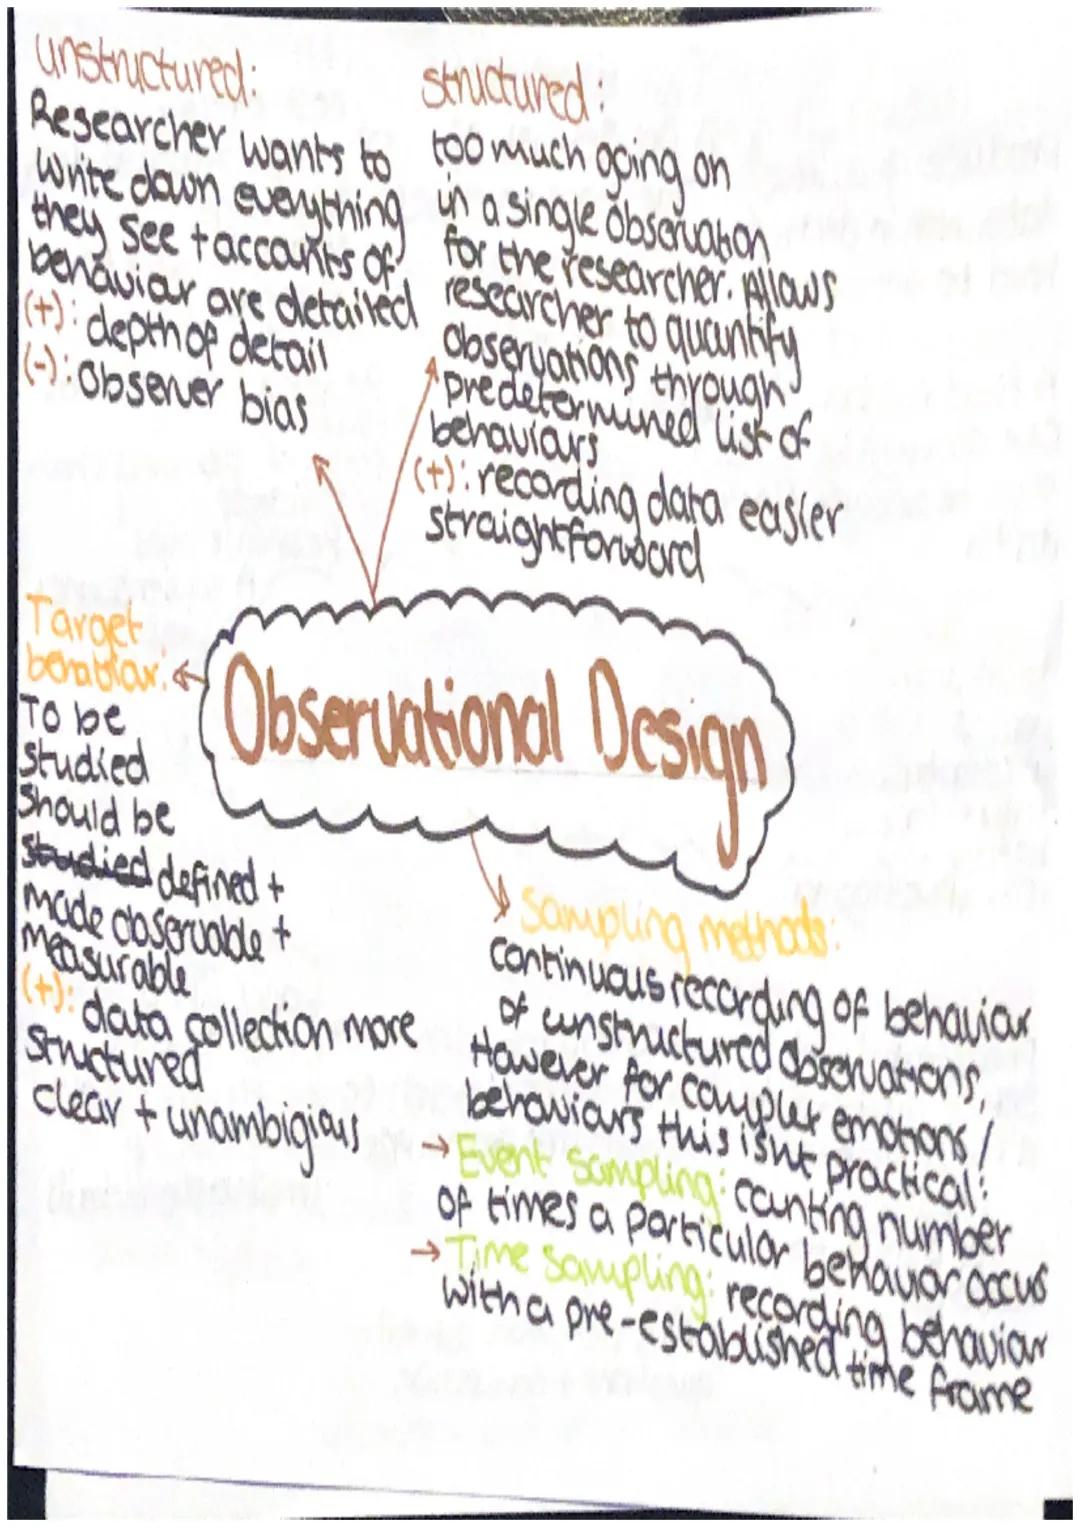 unstructured:
Researcher wants to
write down everything
they see + accounts of
behaviour are detailed
(+): depth of detail
(-): Observer bias
structured:
too much going on
in a single observation
for the researcher. Allows
researcher to quantify
observations through
predetermined list of
behaviours
(+): recording data easier
straightforward
Target
behaviour:
To be
studied
should be
studied defined +
made observable +
measurable
(+): data collection more
structured
clear + unambigious
Observational Design
Sampling methods:
continuous recording of behaviour
of unstructured observations
However for complex emotions/
behaviours this isnt practical:
→ Event sampling: counting number
of times a particular behaviour occurs
→ Time sampling: recording behaviour
with a pre-established time frame